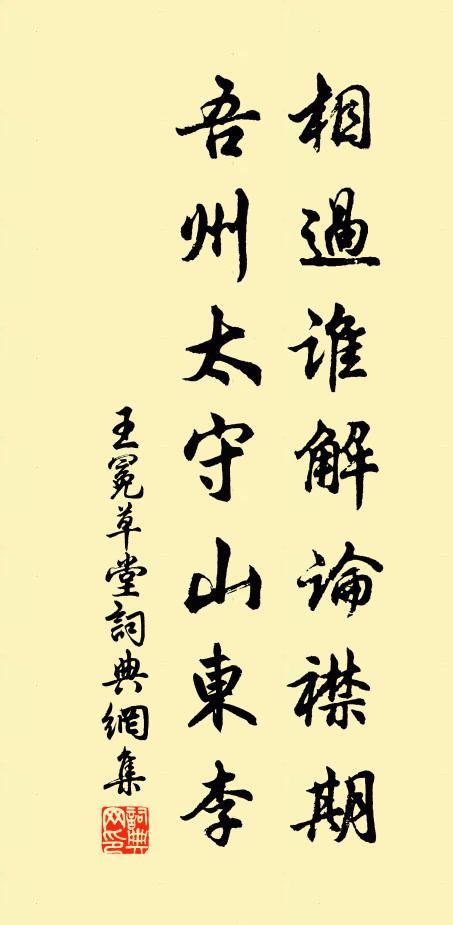 相過誰解論襟期
吾州太守山東李
王冕草堂詞典網集
詞典網印